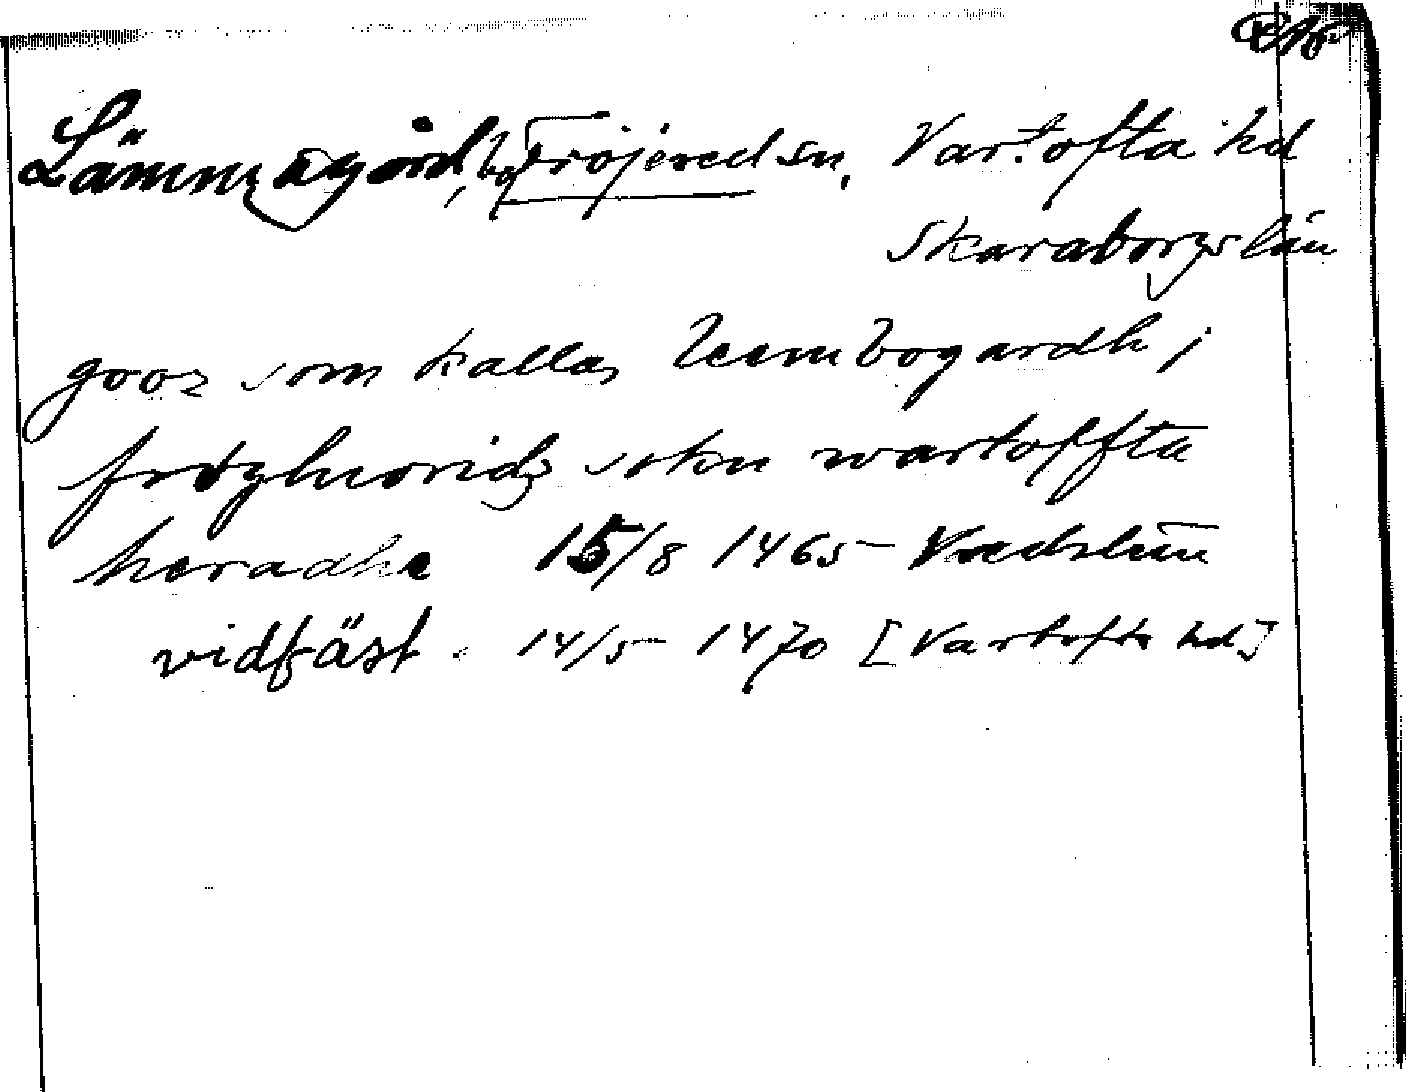 Lämmagård, by Fröjered sn, Vartofta hd
Skaraborgs län
gooz som kallas leembogardh j
frøyluoridz sokn wartoffta
heradhe 15/8 1465 Vædslunn
vidfäst. 14/5 1470 [Vartofta hd]